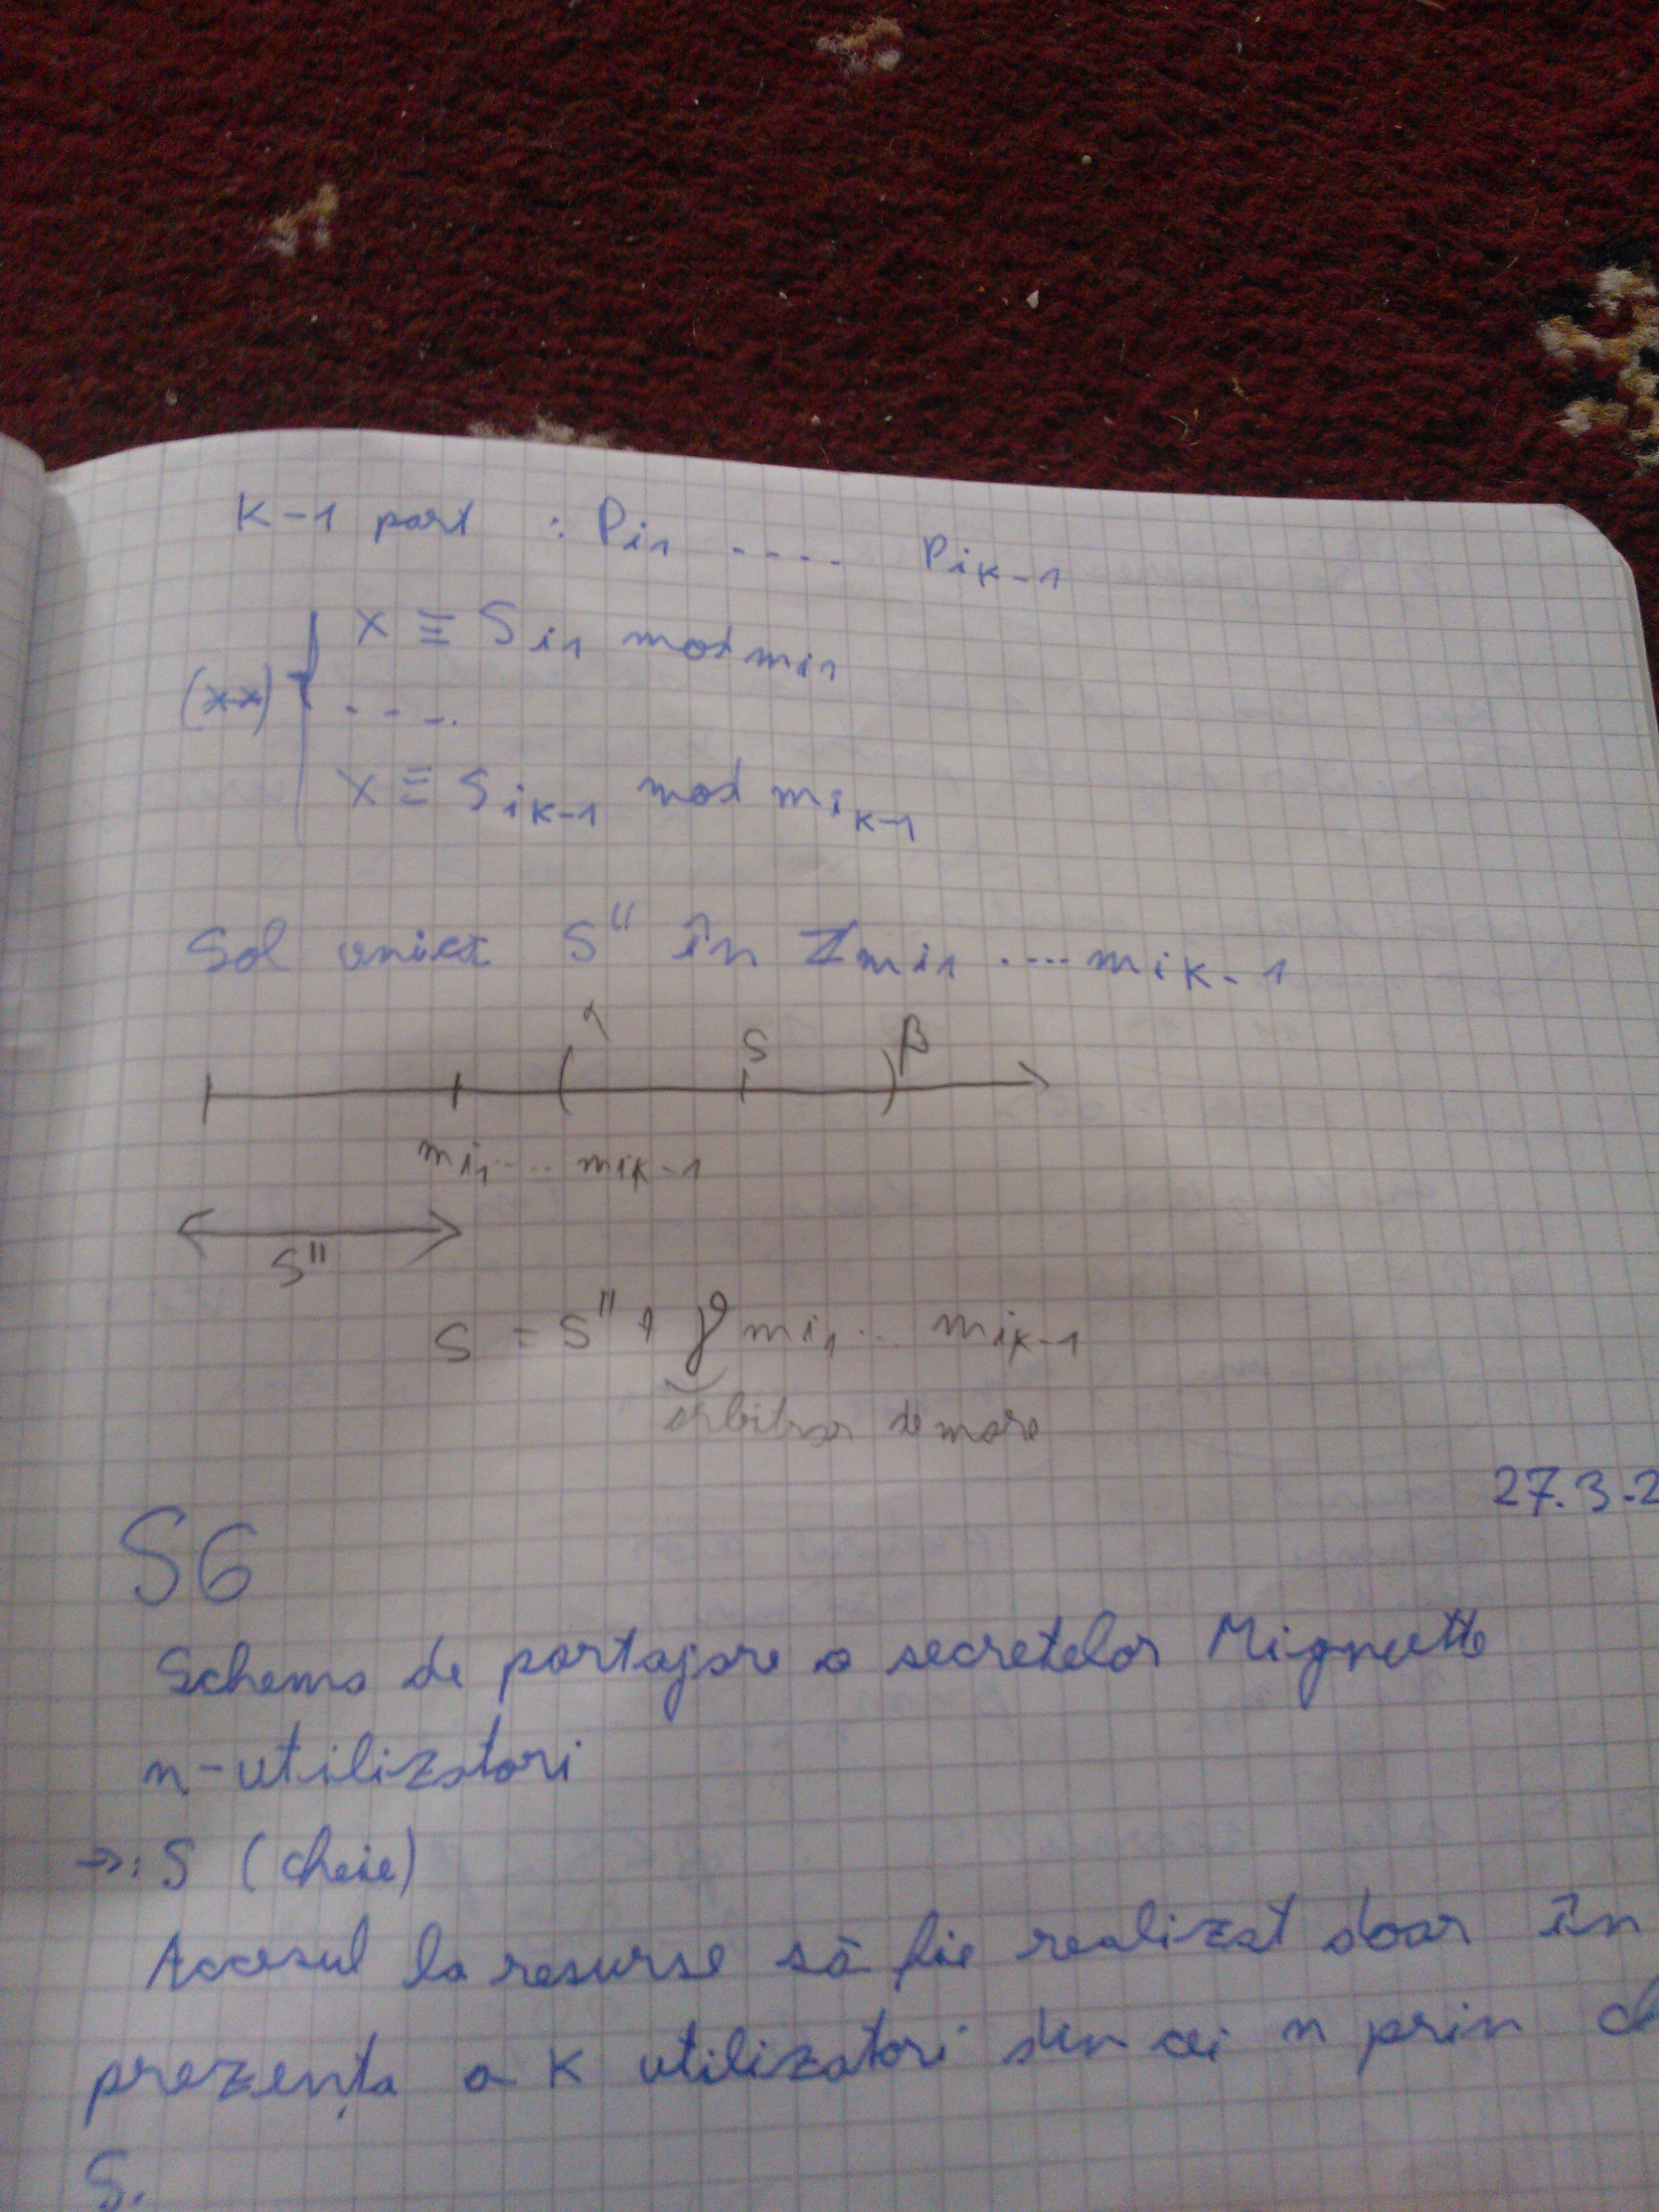 K-1 part : Pi1 .... Pik-1
x ≡ Si1 mod mi1
(**) { ....
x ≡ Sik-1 mod mik-1
Sol unică S" în Zmi1 .... mik-1
S β
mi1 .... mik-1
S"
S = S" + γ mi1 .. mik-1
arbitrar de mare
27.3.2
S6
Schema de partajare a secretelor Mignotte
n-utilizatori
→: S (cheie)
Accesul la resurse să fie realizat doar în
prezența a K utilizatori din cei n prin
S.